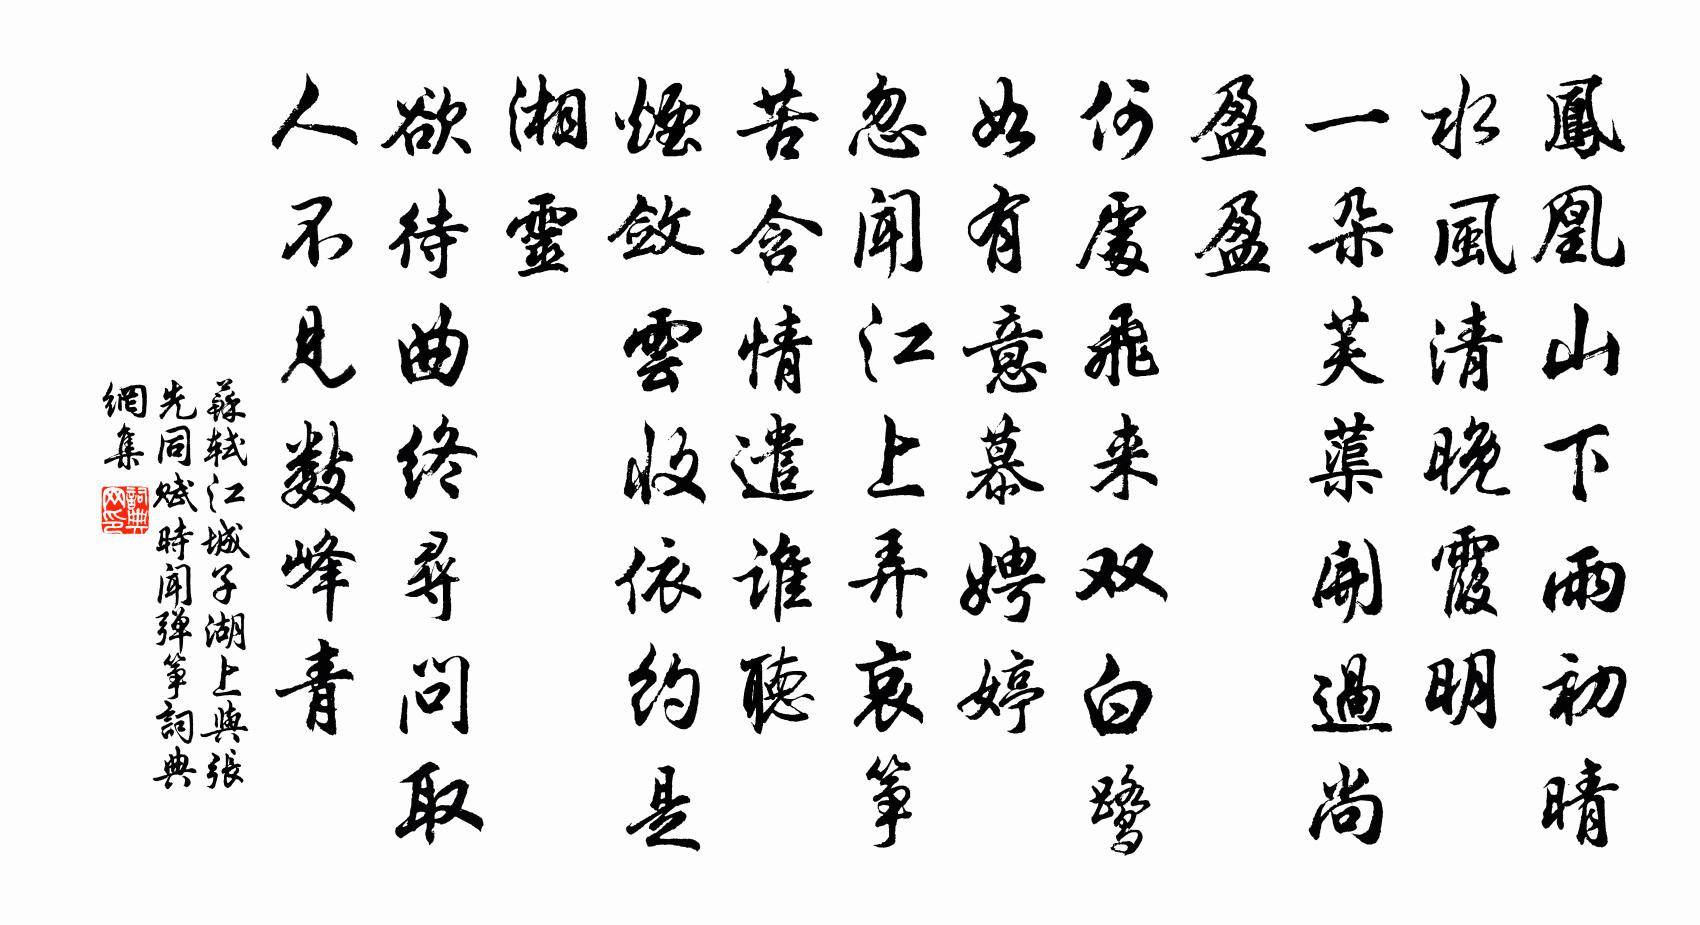 鳳凰山下雨初晴
水風清晚霞明
一朵芙蕖開過尚
盈盈
何處飛来双白鹭
如有意慕娉婷
忽聞江上弄哀筝
苦含情遣誰聽
煙斂雲收依約是
湘靈
欲待曲終尋問取
人不見數峰青
蘇軾江城子湖上與張
先同赋時聞弹筝詞典
網集
詞典网印